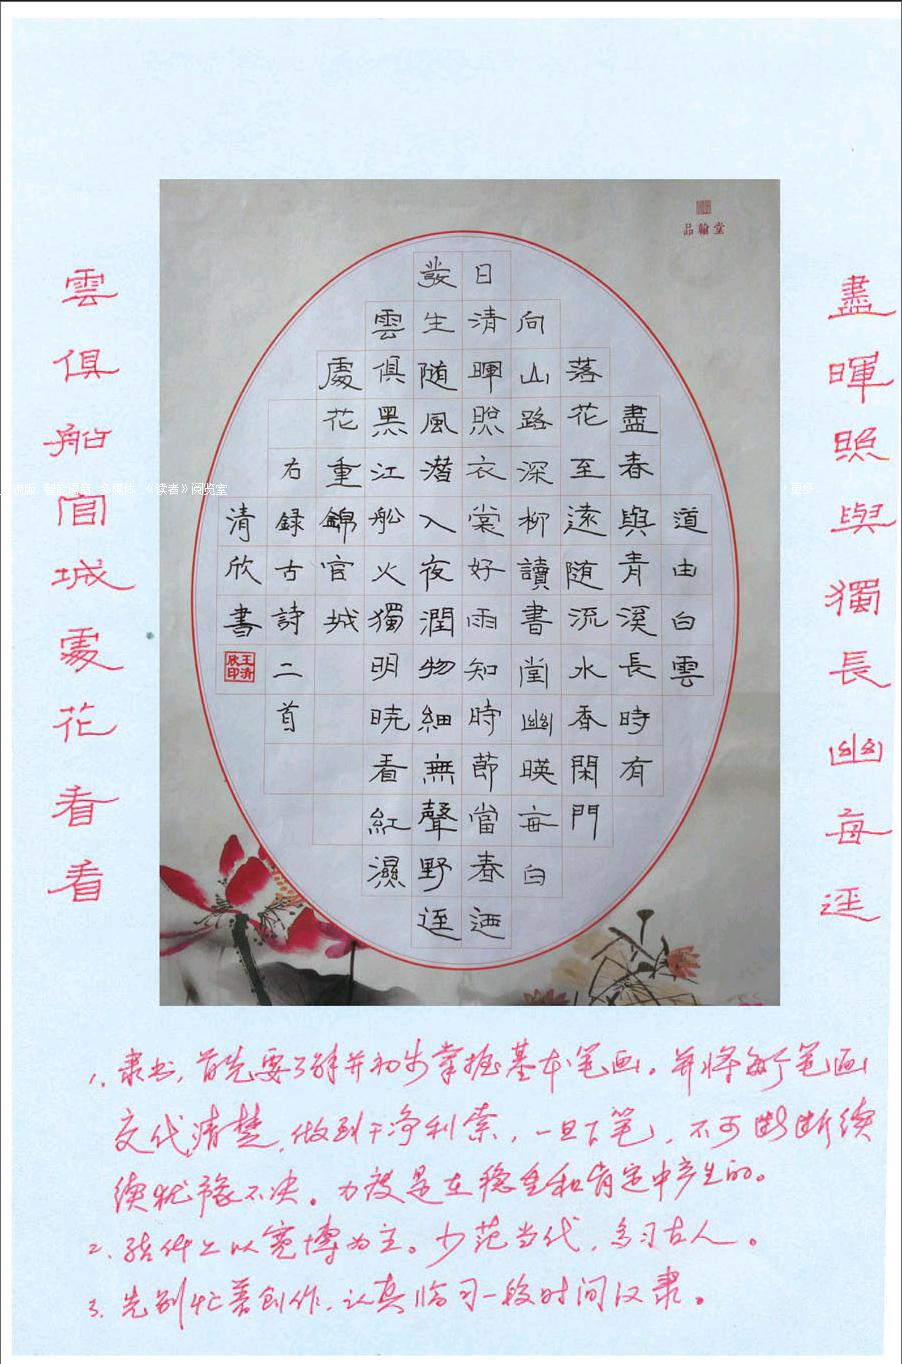 品翰堂
道由白雲
盡春與青溪長時有
落花至遠随流水香閑門
向山路深柳讀書堂幽暎每白
日清暉照衣裳好雨知時節當春迺
發生随風潛入夜潤物細無聲野逕
雲俱黑江船火獨明曉看紅濕
處花重錦官城
右録古詩二首
清欣書
王清欣印
盡暉照與獨長幽每逕
雲俱船官城處花看看
智能语音 多媒体 《读者》阅览室
更多
1. 隶书,首先要了解并初步掌握基本笔画。并将每个笔画
交代清楚,做到干净利索,一旦下笔,不可断断续
续犹豫不决。力度是在稳重和肯定中产生的。
2. 结体上以宽博为主。少范当代,多习古人。
3. 先别忙着创作,认真临习一段时间汉隶。